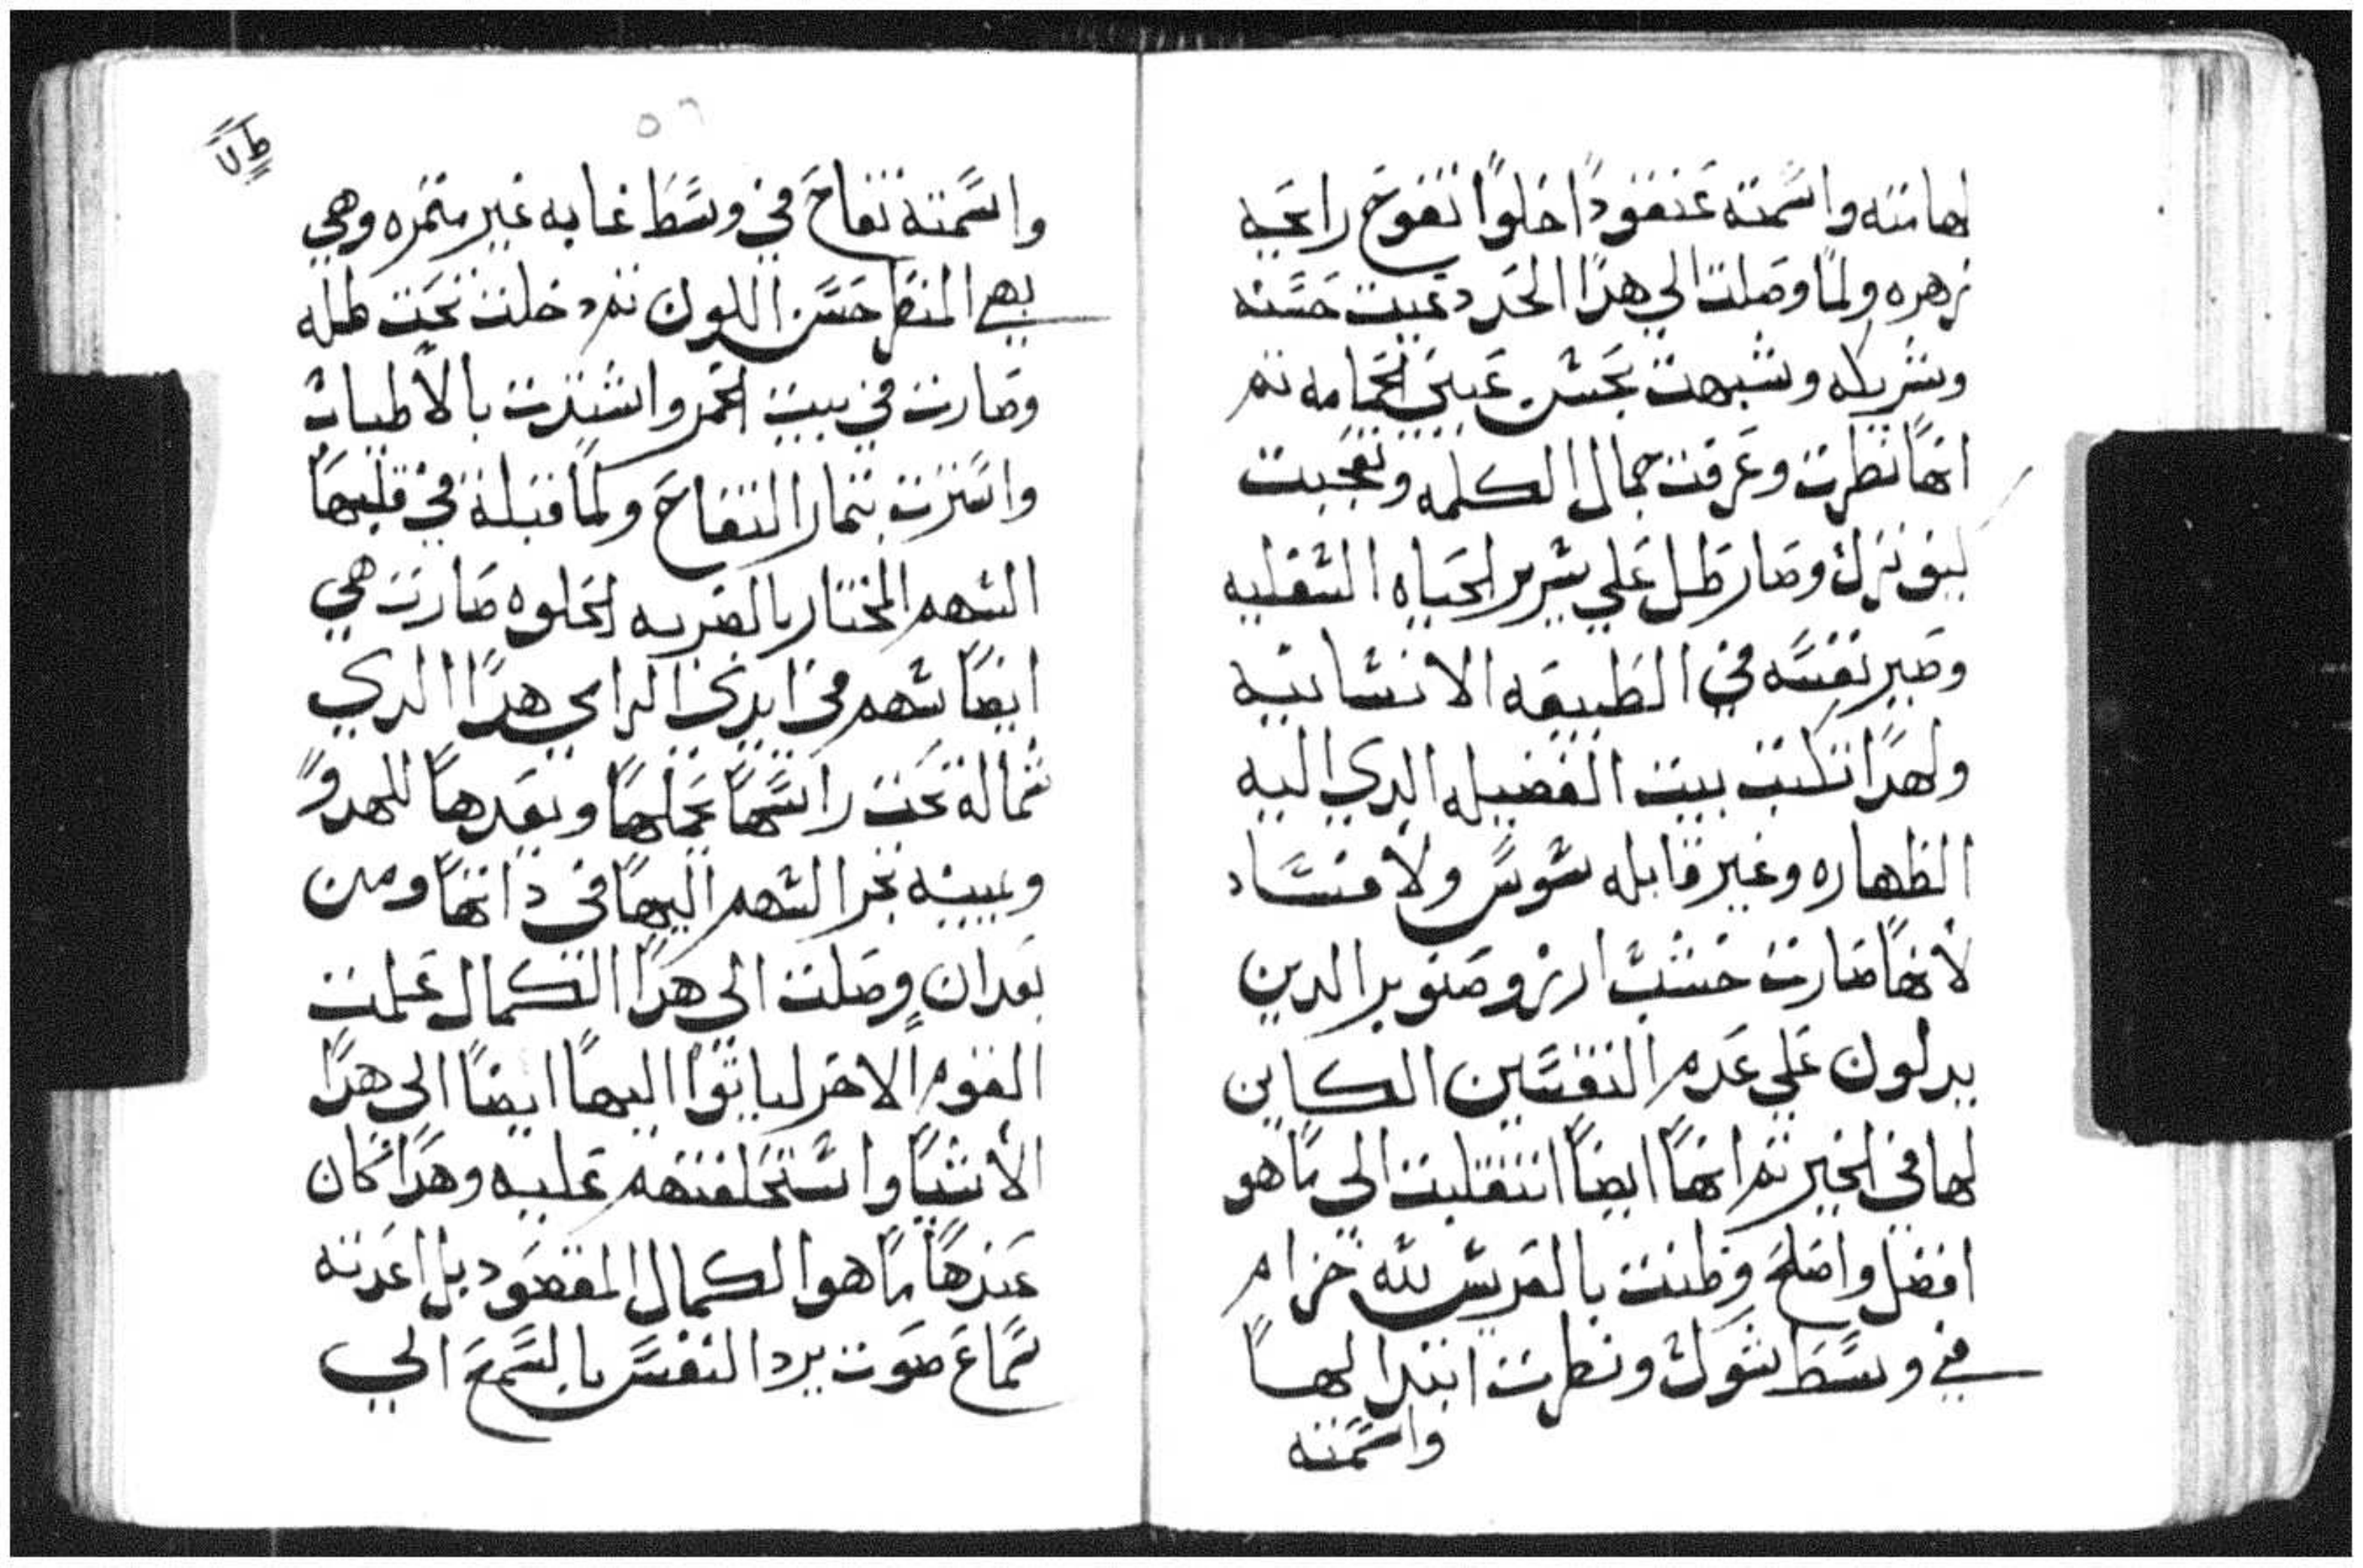 لها منه واسمته عنقودًا حلوًا تفوح رايحه
زهره ولما وصلت الي هذا الحد دعيت حسنه
وشريكه وشبهت بحسن عيني الحمامه ثم
انها نظرت وعرفت جمال الكلمه وتعجبت
كيف نزل وصار ظل علي سرير الحياه السفليه
وصير نفسه في الطبيعه الانسانيه
ولهذا تكتب بيت الفضيله الدي اليه
الطهاره وغير قابله سوس ولا فساد
لانها صارت خشب ارز وصنوبر الدين
يدلون علي عدم التقسيم الكاين
لها في الخير ثم انها ايضًا انتقلت الي ما هو
افضل واصلح وظنت بالعريس لله خزام
في وسط شوك ونظرت ابتدالها
واسمته
٥٦
واسمته تفاح في وسط غابه غير مثمره وهي
بهي المنظر حسن اللون ثم دخلت تحت ظله
وصارت في بيت الخمر واشتدت بالاطياب
واستترت بثمار التفاح ولما قبلت في قلبها
السهم المختار بالضربه الحلوه صارت هي
ايضًا سهم في ايدي الرامي هذا الدي
شماله تحت راسها يجملها ويعدها للهدوّ
ويمينه تجر السهم اليها في ذاتها ومن
بعد ان وصلت الي هذا الكمال علمت
القوم الاخر لياتوا اليها ايضًا الي هذا
الاشيا واستحلفتهم عليه وهذا كان
عندها ما هو الكمال المقصود بل اعدته
سماع صوت يرد النفس بالسمع الي